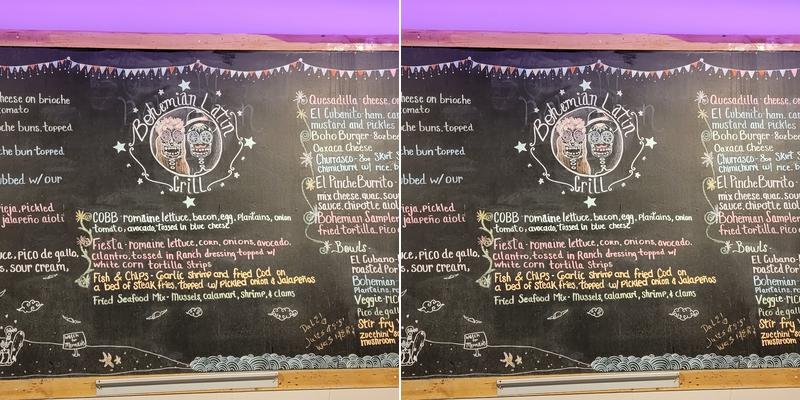 heese on brioche
tomato
he buns, topped
he bun topped
ubbed w/our
ieja, pickled
jalapeño aioli
uce, pico de gallo,
s, sour cream,
Bohemian Latin
Grill
COBB - romaine lettuce, bacon, egg, Plantains, onion
tomato, avocado, tossed in blue cheese
Fiesta - romaine lettuce, corn, onions, avocado,
cilantro, tossed in Ranch dressing topped w/
white corn tortilla strips
Fish & Chips - Garlic shrimp and fried Cod on
a bed of steak fries, topped w/ pickled onion & Jalapeños
Fried Seafood Mix - Mussels, calamari, shrimp, & clams
Quesadilla - cheese, on
El Cubanito - ham, car
mustard and pickles
Boho Burger - 8oz bee
Oaxaca Cheese
Churrasco - 8oz Skirt S
chimichurri w/ rice, b
El Pinche Burrito -
mix cheese, quac
sauce, chipotle aiol
Bohemian Sample
fried tortilla, pico
Bowls
El Cubano -
roasted Por
Bohemian -
Plantains, ri
Veggie - RIC
Pico de gallo
Stir fry
zucchini
mushroom
heese on brioche
tomato
he buns, topped
he bun topped
ubbed w/our
ieja, pickled
jalapeño aioli
uce, pico de gallo,
s, sour cream,
Bohemian Latin
Grill
COBB - romaine lettuce, bacon, egg, Plantains, onion
tomato, avocado, tossed in blue cheese
Fiesta - romaine lettuce, corn, onions, avocado,
cilantro, tossed in Ranch dressing topped w/
white corn tortilla strips
Fish & Chips - Garlic shrimp and fried Cod on
a bed of steak fries, topped w/ pickled onion & Jalapeños
Fried Seafood Mix - Mussels, calamari, shrimp, & clams
Quesadilla - cheese, on
El Cubanito - ham, car
mustard and pickles
Boho Burger - 8oz bee
Oaxaca Cheese
Churrasco - 8oz Skirt S
chimichurri w/ rice, b
El Pinche Burrito -
mix cheese, quac
sauce, chipotle aiol
Bohemian Sample
fried tortilla, pico
Bowls
El Cubano -
roasted Por
Bohemian -
Plantains, ri
Veggie - RIC
Pico de gallo
Stir fry
zucchini
mushroom